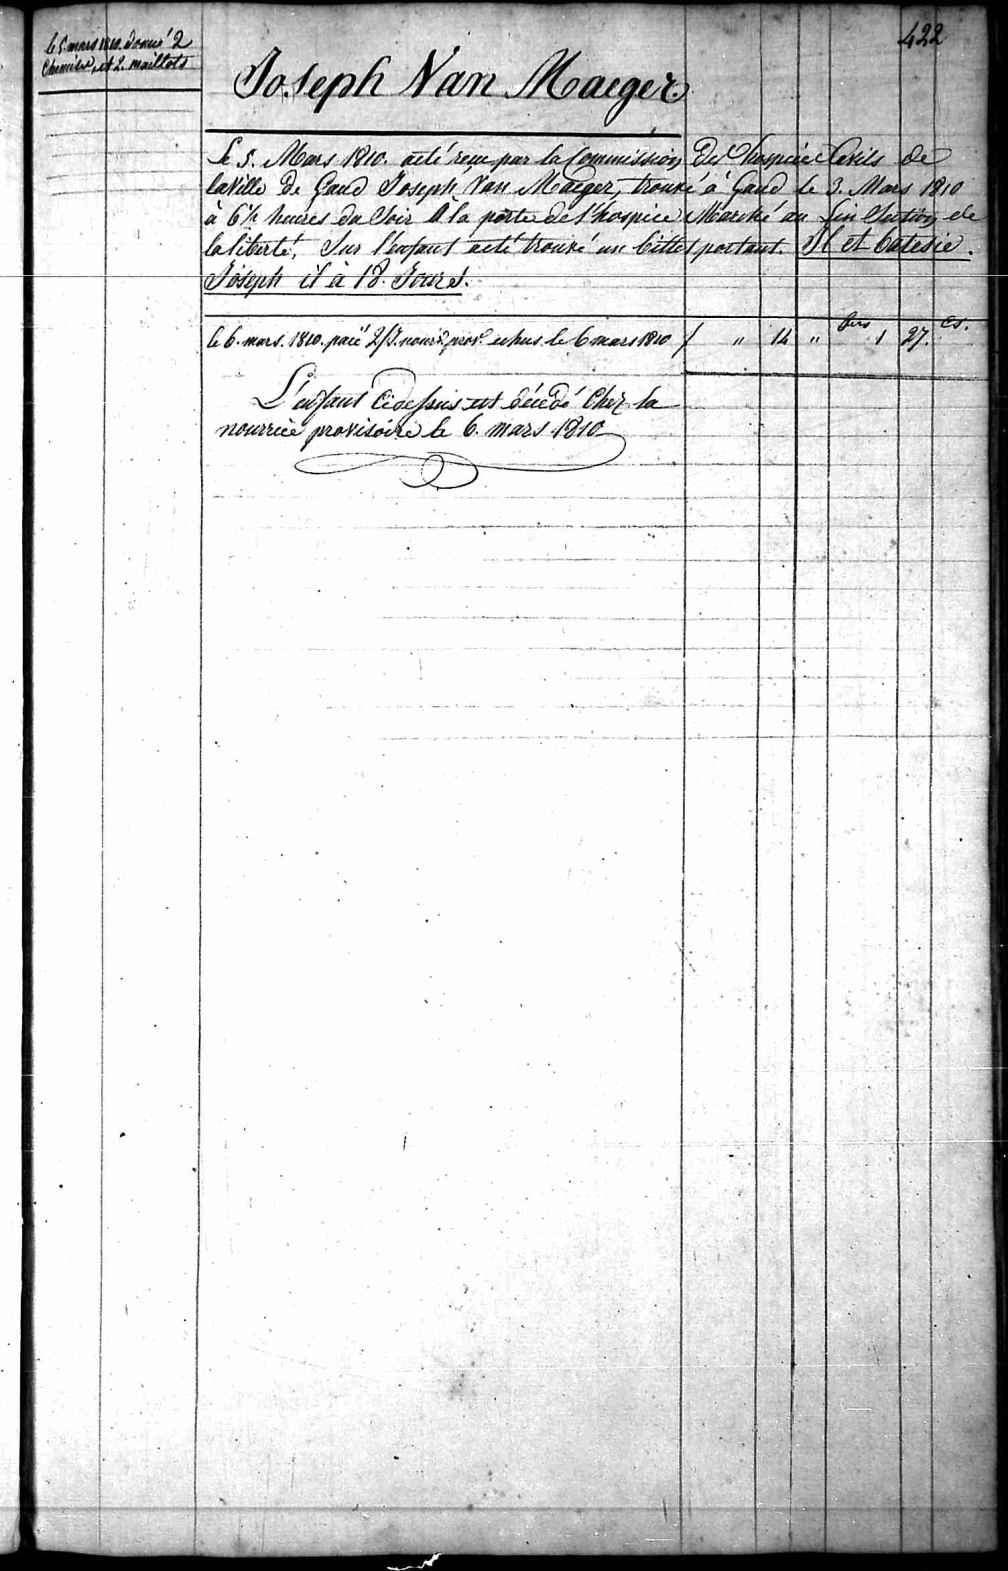 422
le 5. mars 1810. donné 2
Chemises, et 2. maillots
Joseph Van Maeger
Le 5. Mars 1810. a été reçu par la Commission des hospices Civils de
la Ville de Gand Joseph Van Maeger, trouvé à Gand le 3. Mars 1810
à 6½ heures du Soir à la porte de l'hospice Marché au Lin Section de
la liberté. Sur l'enfant a été trouvé un billet portant. Il et batesie.
Joseph il à 18. Jours.
frs cs.
le 6. mars. 1810. paié 2/J. nourr. prov. echus le 6 mars 1810 / " 14 " 1 27.
L'enfant Cidessus est décédé Chez la
nourrice provisoire le 6. mars 1810